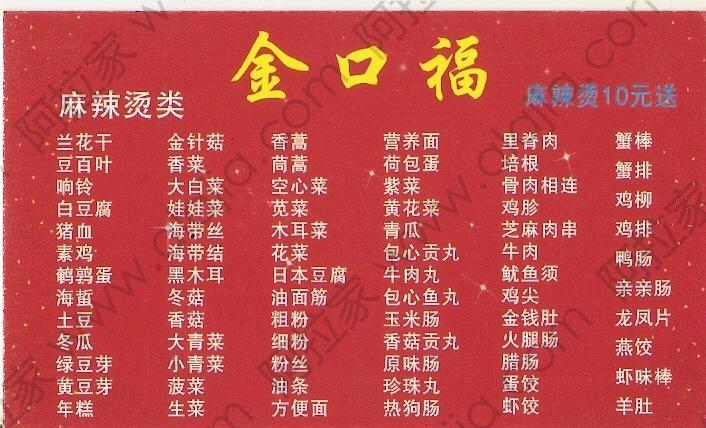 金口福
麻辣烫类
麻辣烫10元送
兰花干 金针菇 香蒿 营养面 里脊肉 蟹棒
豆百叶 香菜 茼蒿 荷包蛋 培根 蟹排
响铃 大白菜 空心菜 紫菜 骨肉相连 鸡柳
白豆腐 娃娃菜 苋菜 黄花菜 鸡胗 鸡排
猪血 海带丝 木耳菜 青瓜 芝麻肉串 鸭肠
素鸡 海带结 花菜 包心贡丸 牛肉 亲亲肠
鹌鹑蛋 黑木耳 日本豆腐 牛肉丸 鱿鱼须 龙凤片
海蜇 冬菇 油面筋 包心鱼丸 鸡尖 燕饺
土豆 香菇 粗粉 玉米肠 金钱肚 虾味棒
冬瓜 大青菜 细粉 香菇贡丸 火腿肠 羊肚
绿豆芽 小青菜 粉丝 原味肠 腊肠
黄豆芽 菠菜 油条 珍珠丸 蛋饺
年糕 生菜 方便面 热狗肠 虾饺
阿拉家 www.alajia.com